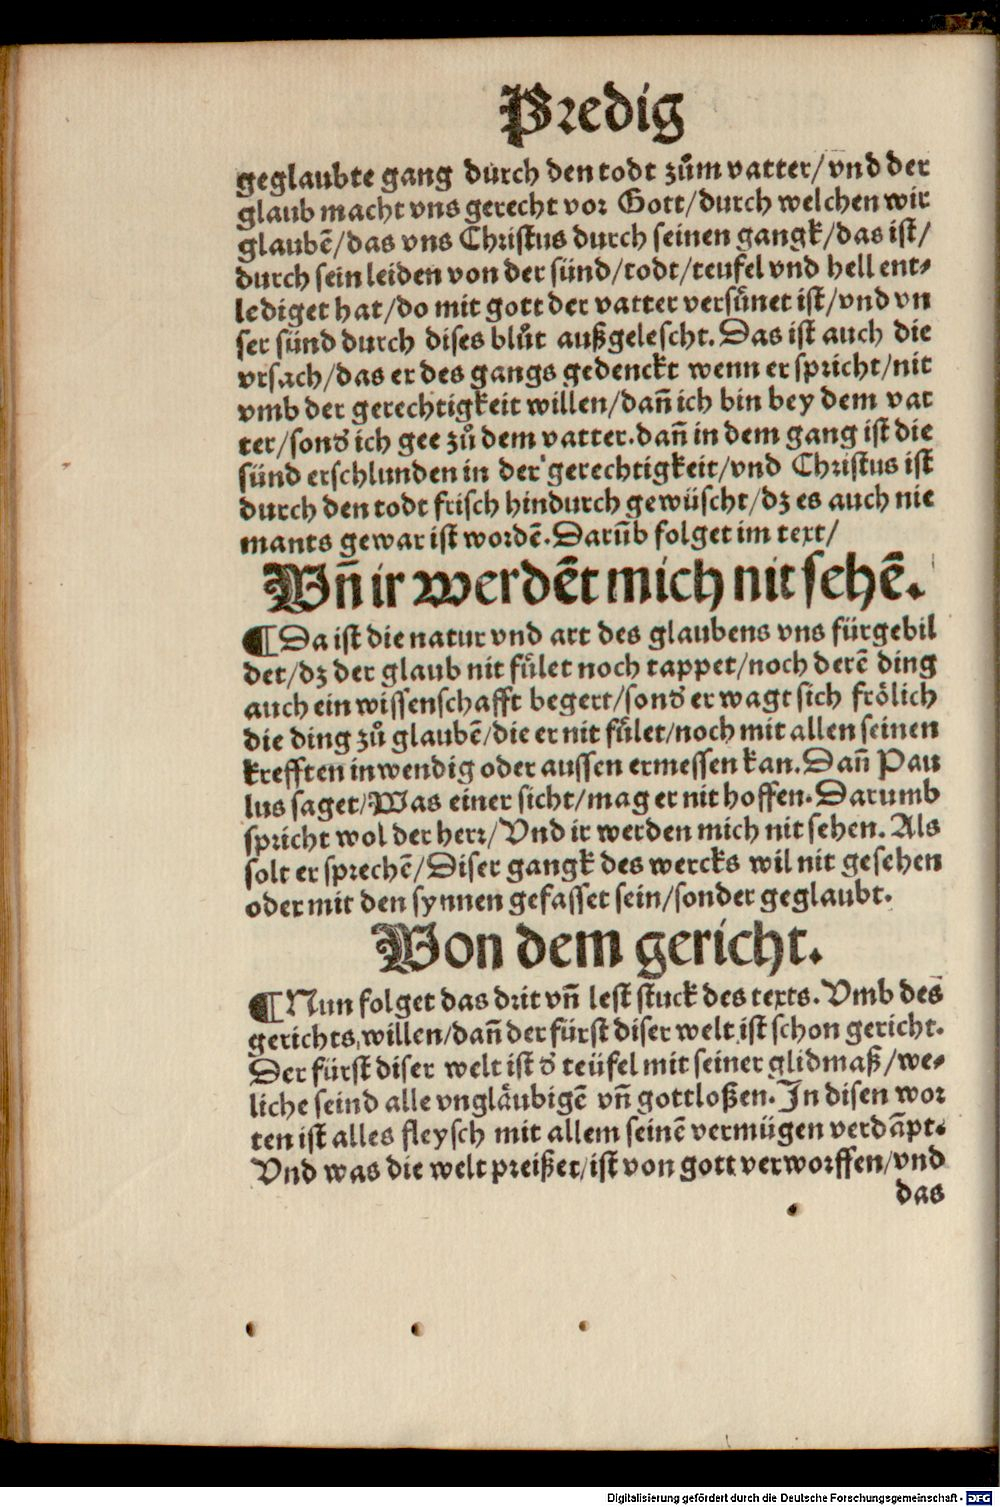 Predig
geglaubte gang durch den todt zům vatter/vnd der
glaub macht vns gerecht vor Gott/durch welchen wir
glaubẽ/das vns Christus durch seinen gangk/das ist/
durch sein leiden von der sünd/todt/teufel vnd hell ent-
lediget hat/do mit gott der vatter versůnet ist/vnd vn
ser sünd durch dises blůt außgelescht. Das ist auch die
vrsach/das er des gangs gedenckt wenn er spricht/nit
vmb der gerechtigkeit willen/dañ ich bin bey dem vat
ter/sonđ ich gee zů dem vatter. dañ in dem gang ist die
sünd erschlunden in der gerechtigkeit/vnd Christus ist
durch den todt frisch hindurch gewüscht/dz es auch nie
mants gewar ist wordẽ. Darũb folget im text/
Vñ ir werdẽt mich nit sehẽ.
¶ Da ist die natur vnd art des glaubens vns fürgebil
det/dz der glaub nit fůlet noch tappet/noch derẽ ding
auch ein wissenschafft begert/sonđ er wagt sich frölich
die ding zů glaubẽ/die er nit fůlet/noch mit allen seinen
krefften inwendig oder aussen ermessen kan. Dañ Pau
lus saget/Was einer sicht/mag er nit hoffen. Darumb
spricht wol der herr/Vnd ir werden mich nit sehen. Als
solt er sprechẽ/Diser gangk des wercks wil nit gesehen
oder mit den synnen gefasset sein/sonder geglaubt.
Von dem gericht.
¶ Nun folget das drit vñ lest stuck des texts. Vmb des
gerichts willen/dañ der fürst diser welt ist schon gericht.
Der fürst diser welt ist đ teüfel mit seiner glidmaß/we-
liche seind alle vngläubigẽ vñ gottloßen. In disen wor
ten ist alles fleysch mit allem seinẽ vermügen verdãpt.
Vnd was die welt preißet/ist von gott verworffen/vnd
das
Digitalisierung gefördert durch die Deutsche Forschungsgemeinschaft - DFG